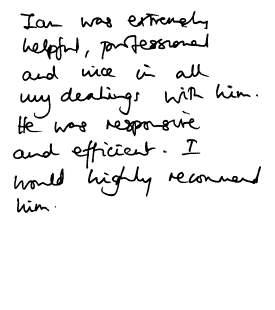 Ian was extremely
helpful, professional
and nice in all
my dealings with him.
He was responsive
and efficient. I
would highly recommend
him.